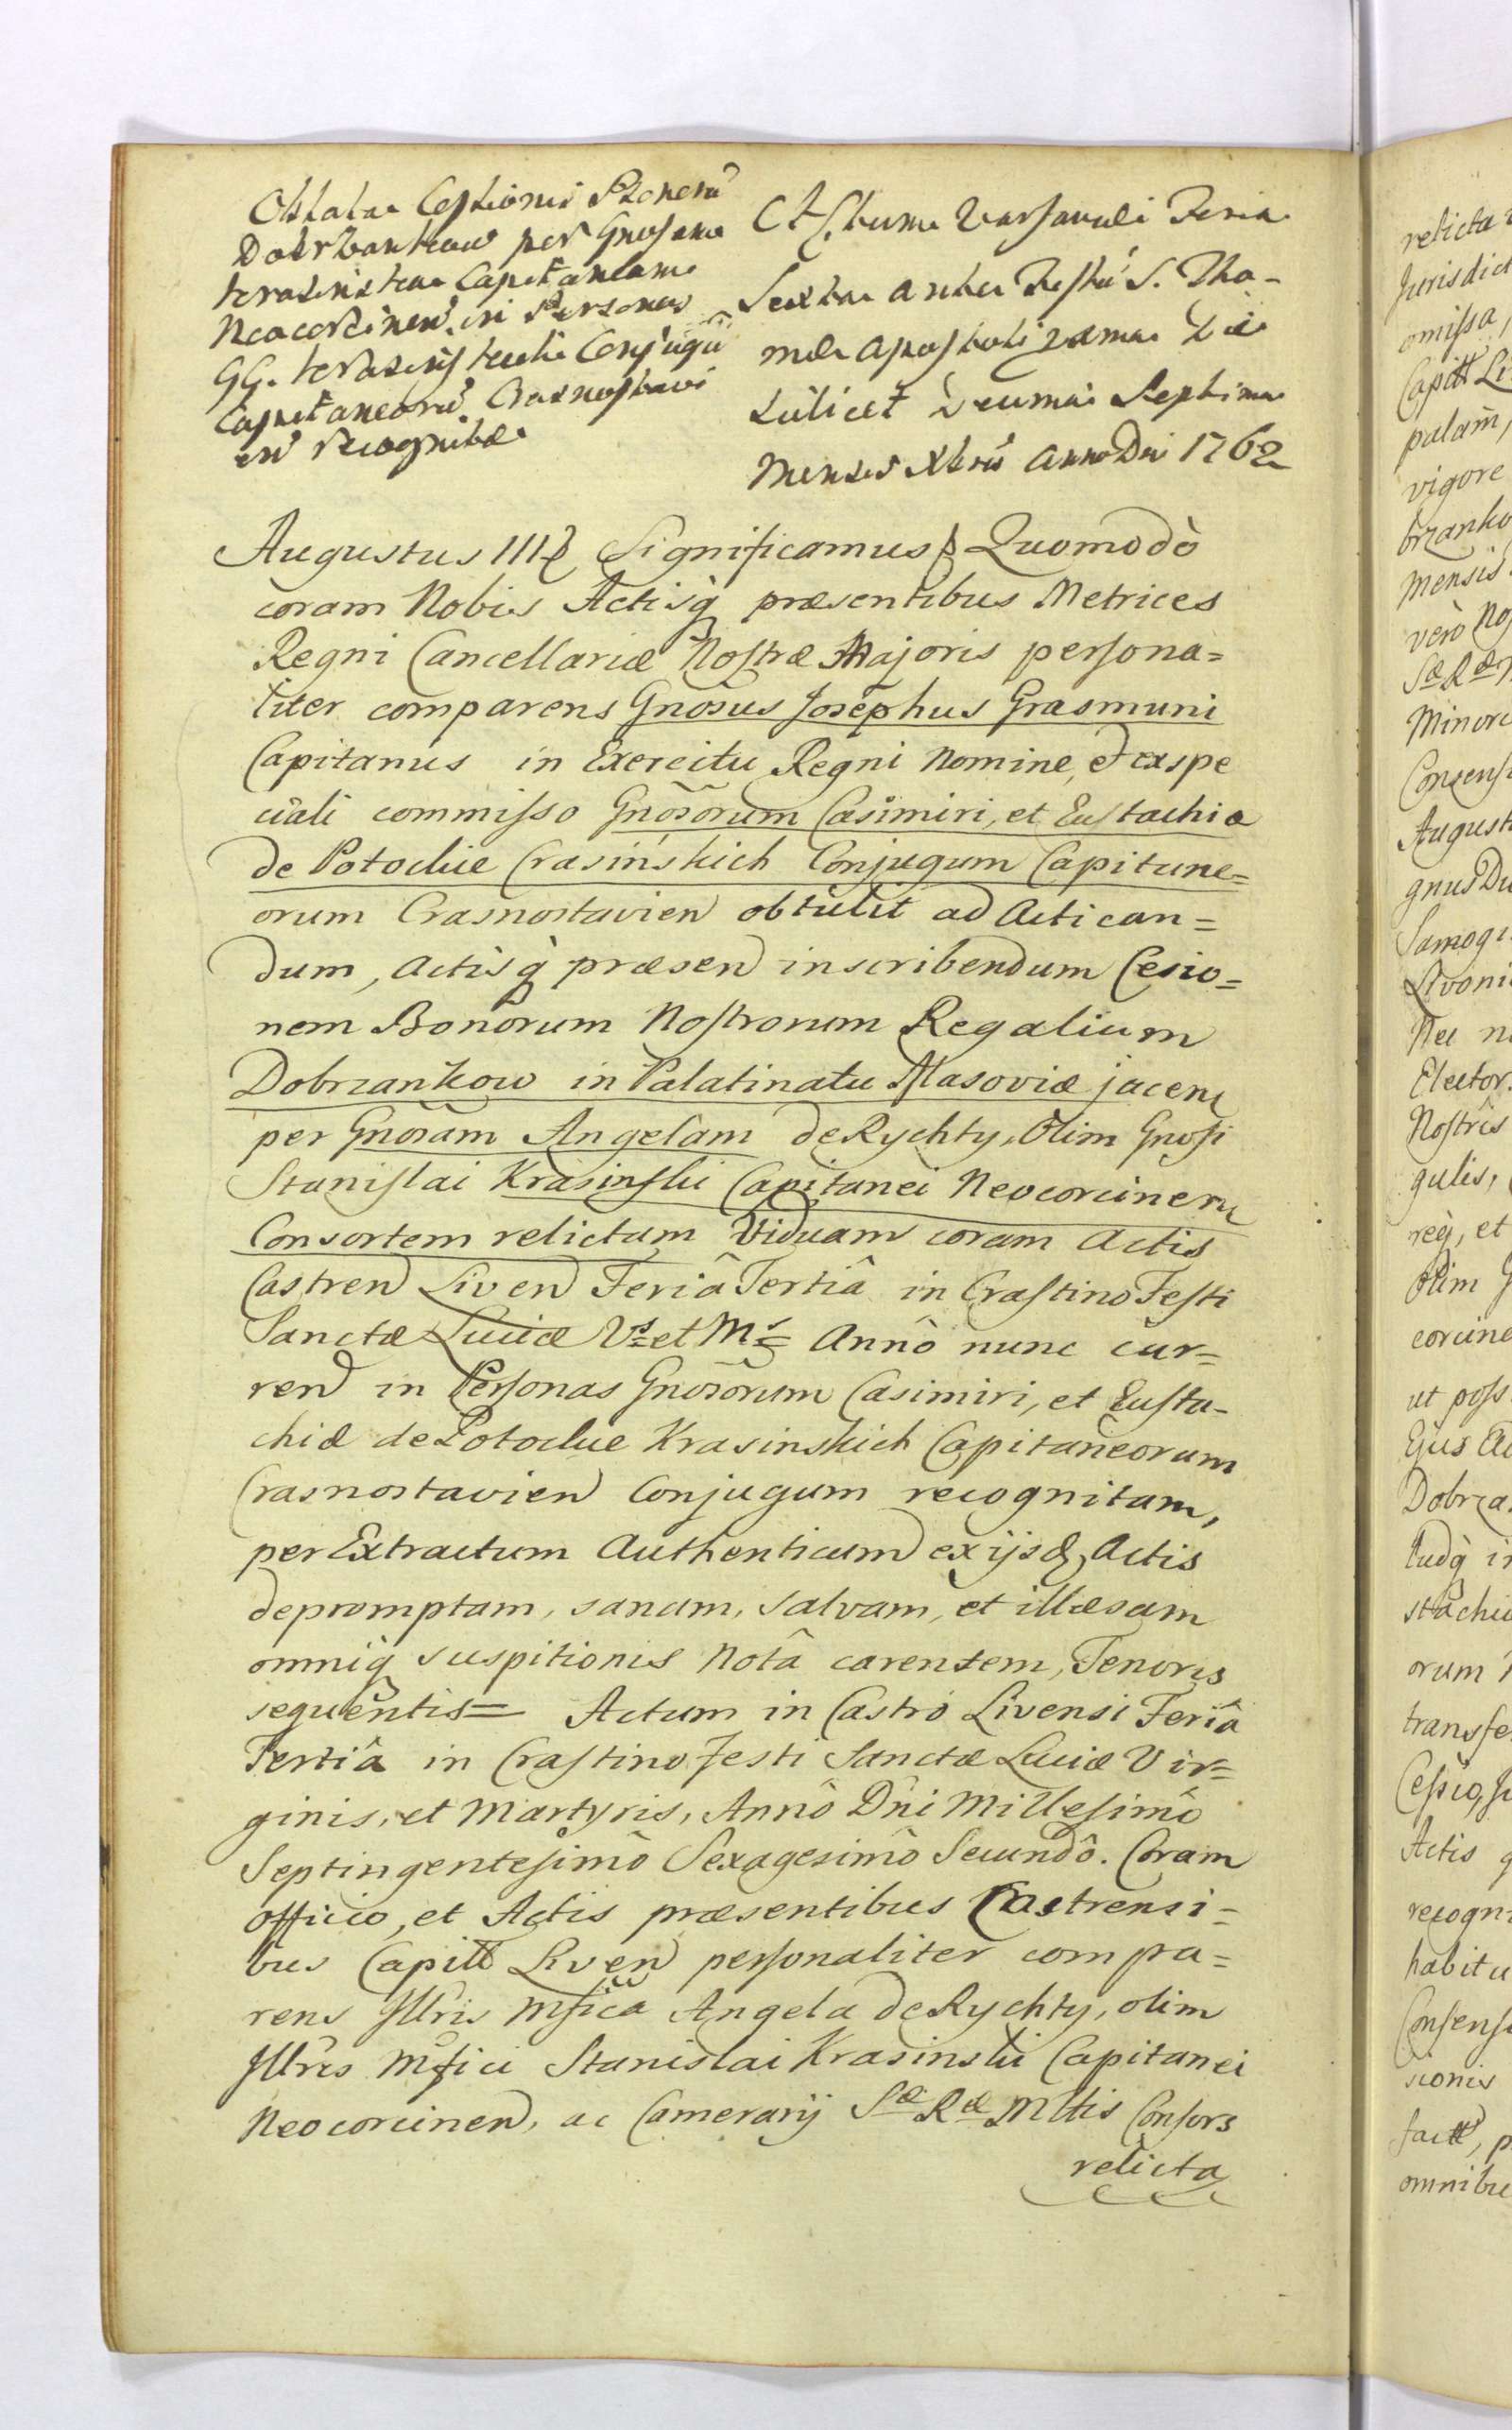 Oblata Cessionis Bonorũ
Dobrzankow per Gnosam
Krasinska Capitaneam
Neocorcinen. in Personas
GG. Krasinskich Conjugũ
Capitaneorũ Crasnostavi
en recognitæ
Actum Varsaviæ Feria
Sexta ante Festũ S. Tho-
mæ Apostoli 
scilicet Decima Septima
Mensis Xbris Anno Dni 1762
Augustus III Significamus Quomodò
coram Nobis Actisq̀ præsentibus Metrices
Regni Cancellariæ Nostræ Majoris persona=
liter comparens Gnosus Josephus Grasmuni
Capitanus in Exercitu Regni Nomine, et ex spe
ciali commisso Gnosorum Casimiri, et Eustachia
de Potockie Crasinskich Conjugum Capitane=
orum Crasnostavien obtulit ad Actican=
dum, Actisq̀ præsen inscribendum Cesio=
nem Bonorum Nostrorum Regalium
Dobrzankow in Palatinatu Masoviæ jacen
per Gnosam Angelam de Rychty, Olim Gnosi
Stanislai Krasinski Capitanei Neocorcinen
Consortem relictam Viduam coram Actis
Castren Liven Feriâ Tertiâ in Crastino Festi
Sanctæ Luciæ Vs et Ms Annô nunc cur=
ren in Personas Gnosorum Casimiri, et Eusta-
chiæ de Potockie Krasinskich Capitaneorum
Crasnostavien Conjugum recognitam,
per Extractum Authenticum ex ijsd Actis
depromptam, sanam, salvam, et illæsam
omniq̀ suspitionis Notâ carentem, Tenoris
sequentis= Actum in Castro Livensi Feriâ
Tertiâ in Crastino Festi Sanctæ Luciæ Vir=
ginis, et Martyris, Annô Dñi Millesimô
Septingentesimô Sexagesimô Secundô. Coram
Officio, et Actis præsentibus Castrensi=
bus Capitt Liven personaliter compa=
rens Jllris Mfica Angela de Rychty, olim
Jllris Mfici Stanislai Krasinski Capitanei
Neocorcinen, ac Camerarij Sæ Ræ Mttis Consors
relicta
relicta
Jurisdict
omissa,
Capitt Li
palam,
vigore
brzanko
Mensis
verò No
Sæ Ræ
Minori
Consens
August
gnus Du
Samogi
Livoni
Nec n
Elector
Nostris
gulis,
req̀, et
Olim G
corcine
ut poss
Ejus
Dobrza
tudq̀ i
stachi
orum
transfe
Cessio, Ju
Actis q
recogni
habitu
Consens
sionis
factt, p
omnibu